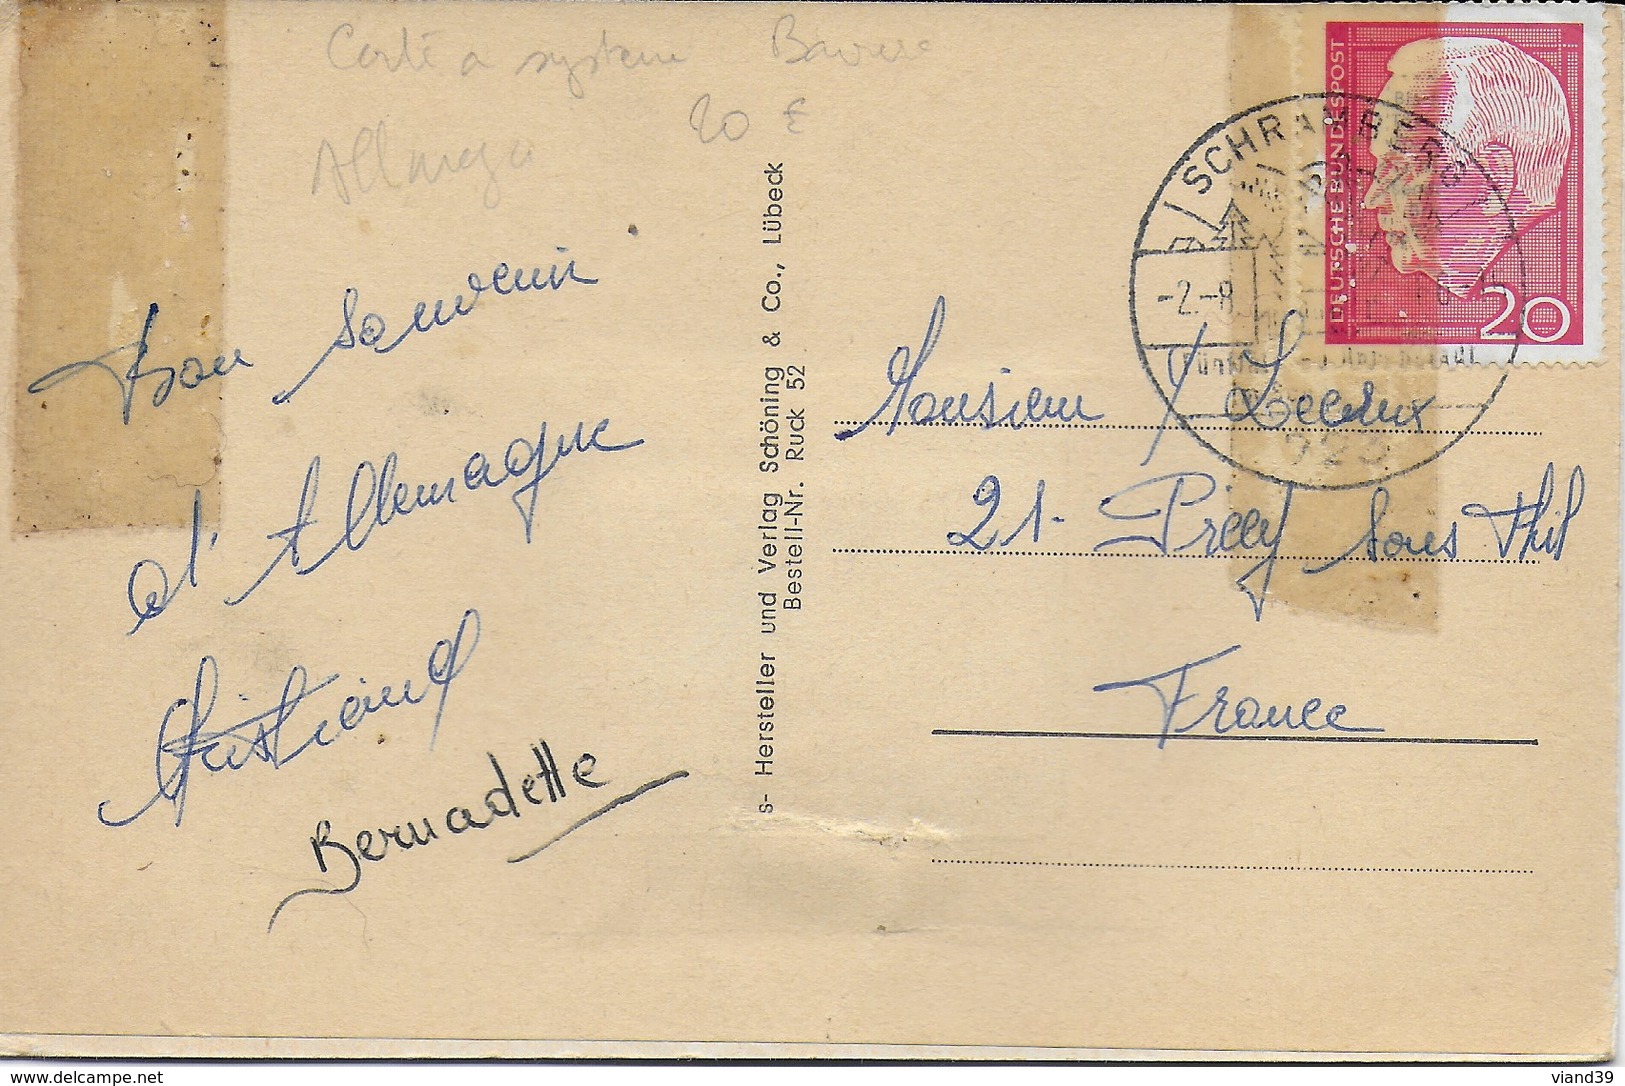 Carte a systeme
20 €
Bon souvenir
d'Allemagne
Christiane
Bernadette
s- Hersteller und Verlag Schöning & Co., Lübeck
Bestell-Nr. Ruck 52
DEUTSCHE BUNDESPOST
20
SCHRAMBERG
-2.-8
Monsieur
21- Précy Sous Thil
France
delcampe.net
viand39